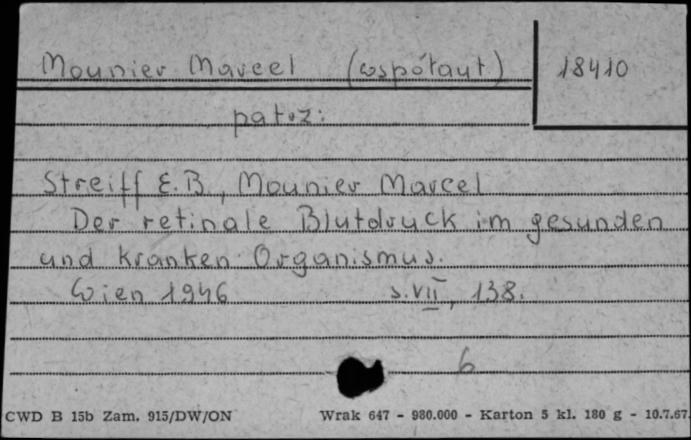 Mounier Marcel (współaut) 18410
patrz:
Streiff E.B., Mounier Marcel
Der retinale Blutdruck im gesunden
und kranken Organismus.
Wien 1946 s. VII, 138.
6
CWD B 15b Zam. 915/DW/ON Wrak 647 - 980.000 - Karton 5 kl. 180 g - 10.7.67.